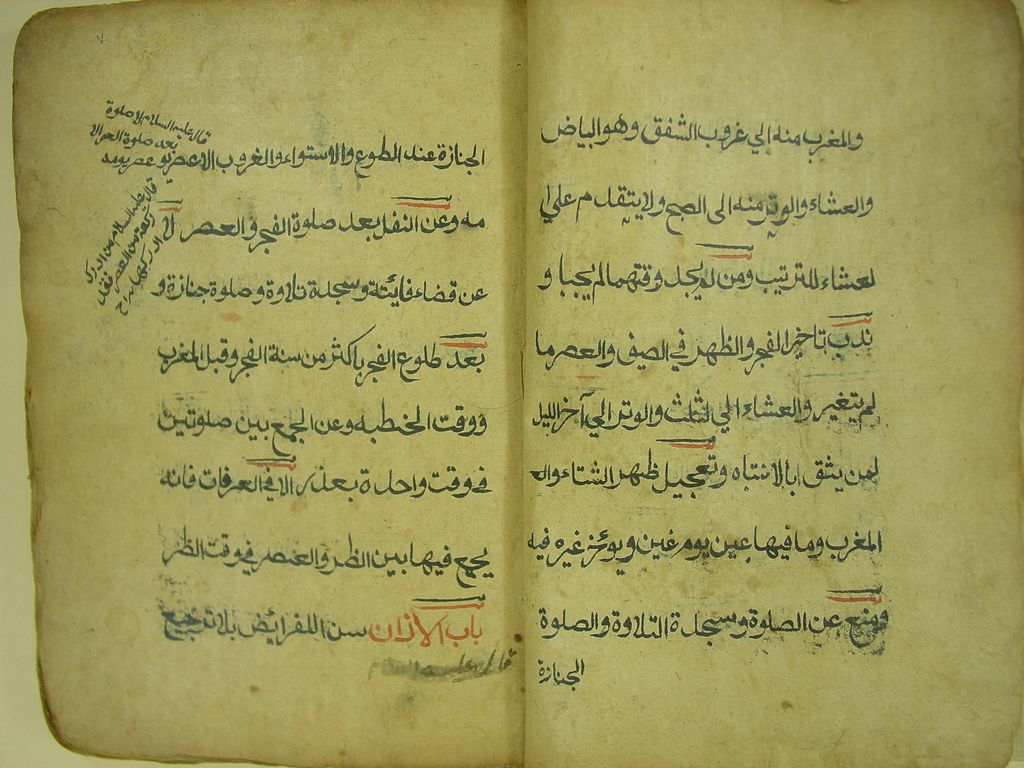 والمغرب منه الي غروب الشفق وهو البياض
والعشاء والوتر منه الى الصبح ولا يتقدم علي ا
لعشاء للترتيب ومن لم يجد وقتهما لم يجبا و
ندب تاخير الفجر والظهر في الصيف والعصر ما
لم يتغير والعشاء الي الثلث والوتر الي آخر الليل
لمن يثق بالانتباه وتعجيل ظهر الشتاء والـ
المغرب وما فيها عين يوم غين ويوئخر غيره فيه
ومنع عن الصلوة وسجدة التلاوة والصلوة
الجنازة
الجنازة عند الطوع والاستواء والغروب الا عصر يومه
مه وعن النفل بعد صلوة الفجر والعصر لا
عن قضاء فائتة وسجدة تلاوة وصلوة جنازة و
بعد طلوع الفجر باكثر من سنة الفجر وقبل المغرب
ووقت الخطبه وعن الجمع بين صلوتين
في وقت واحدة بعذر الا في العرفات فانه
يجمع فيها بين الظهر والعصر في وقت الظهر
باب الاذان سن اللفرائض بلا ترجيع
قال عليه السلام
قال عليه السلام لا صلوة
بعد صلوة العصر الا
عصر يومه
قال عليه السلام من ادرك
ركعة من العصر فقد
ادركها